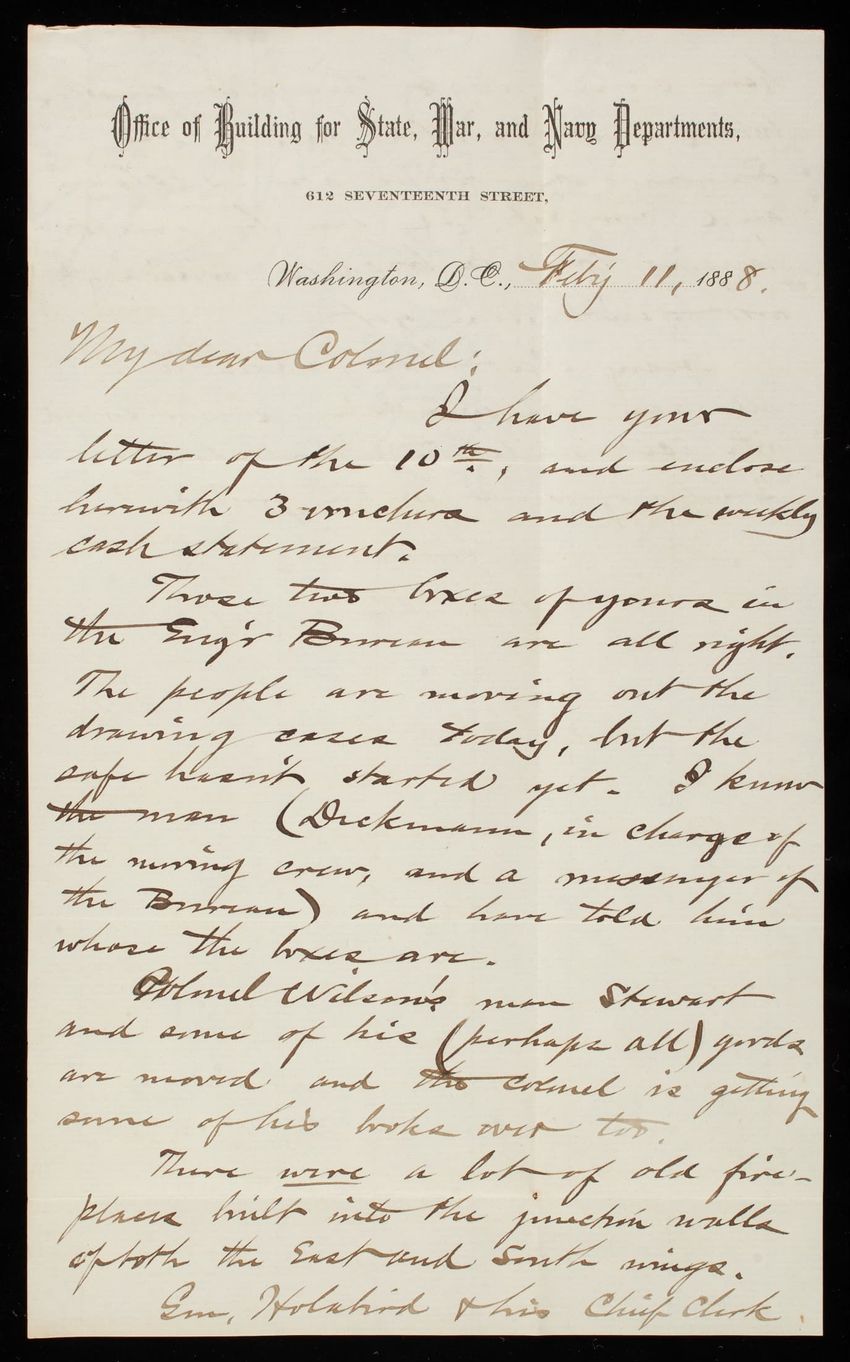 Office of Building for State, War, and Navy Departments,
612 SEVENTEENTH STREET,
Washington, D.C., Feb'y 11, 1888.
My dear Colonel:
I have your
letter of the 10th, and enclose
herewith 3 vouchers and the weekly
cash statement.
Those two boxes of yours in
the Eng'r Bureau are all right.
The people are moving out the
drawing cases today, but the
safe hasn't started yet. I know
the man (Dickmann, in charge of
the moving crew, and a messenger of
the Bureau) and have told him
whose the boxes are.
Colonel Wilson's man Stewart
and some of his (perhaps all) goods
are moved and the Colonel is getting
some of his books over too.
There were a lot of old fire-
places built into the junction walls
of both the East and South wings.
Gen. Holabird & his Chief Clerk